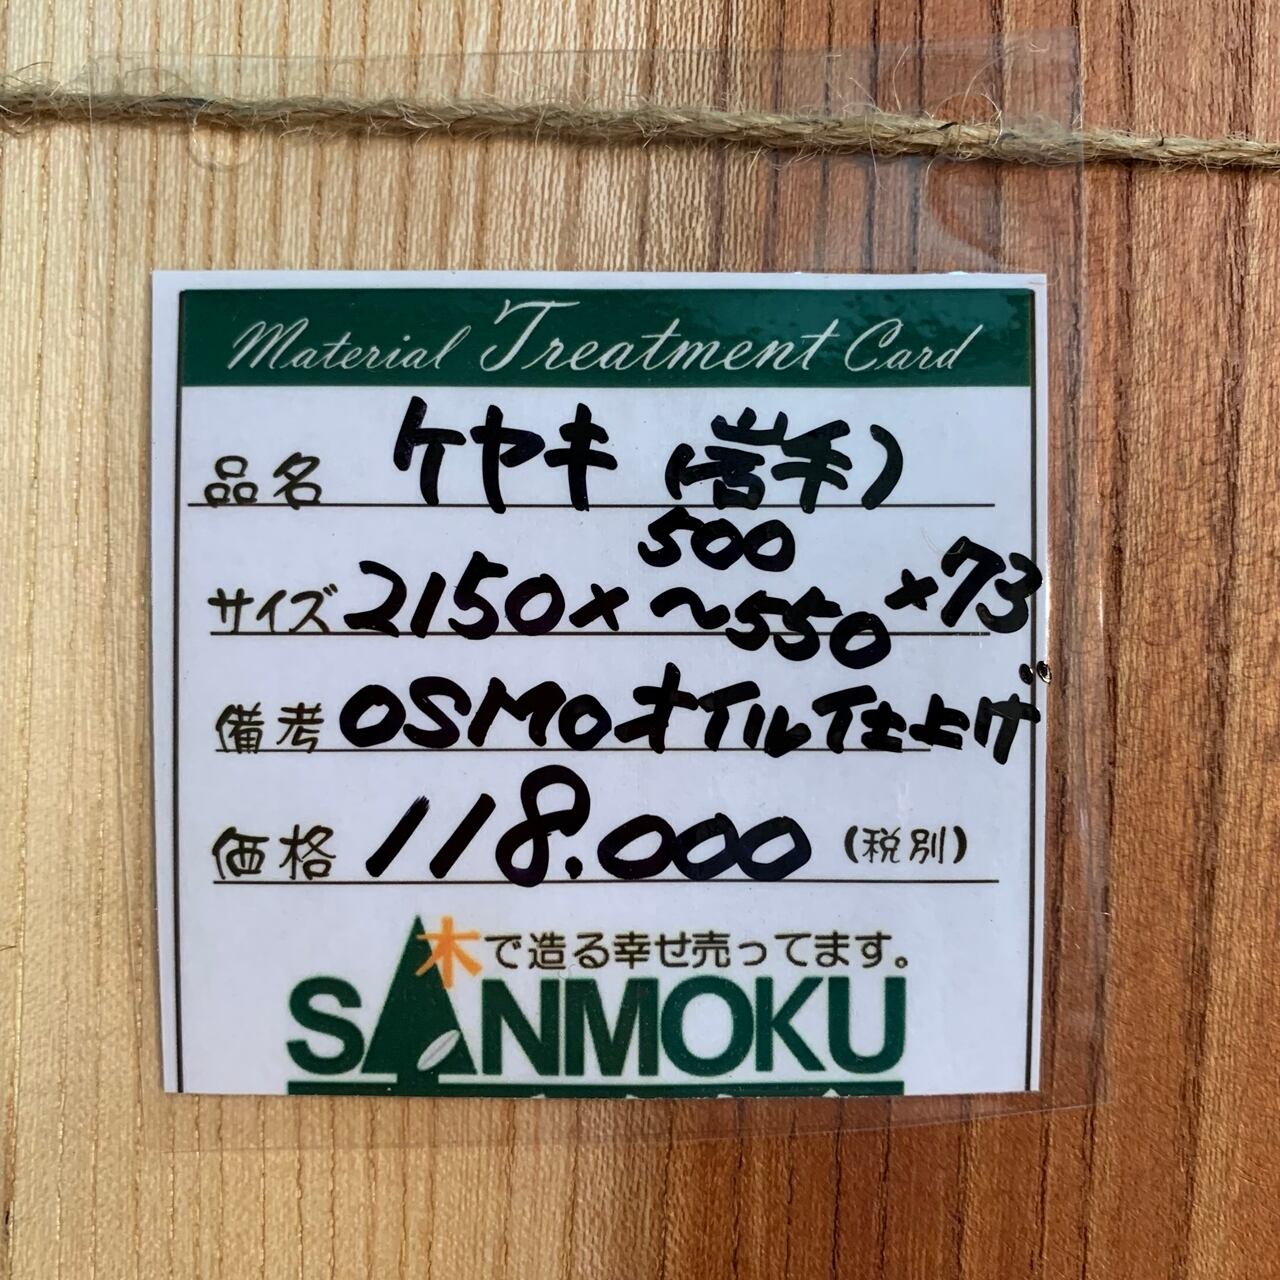 Material Treatment Card
品名 ケヤキ (岩手)
サイズ 2150× 500~550 ×73
備考 OSMOオイル仕上げ
価格 118.000 (税別)
木で造る幸せ売ってます。
SANMOKU